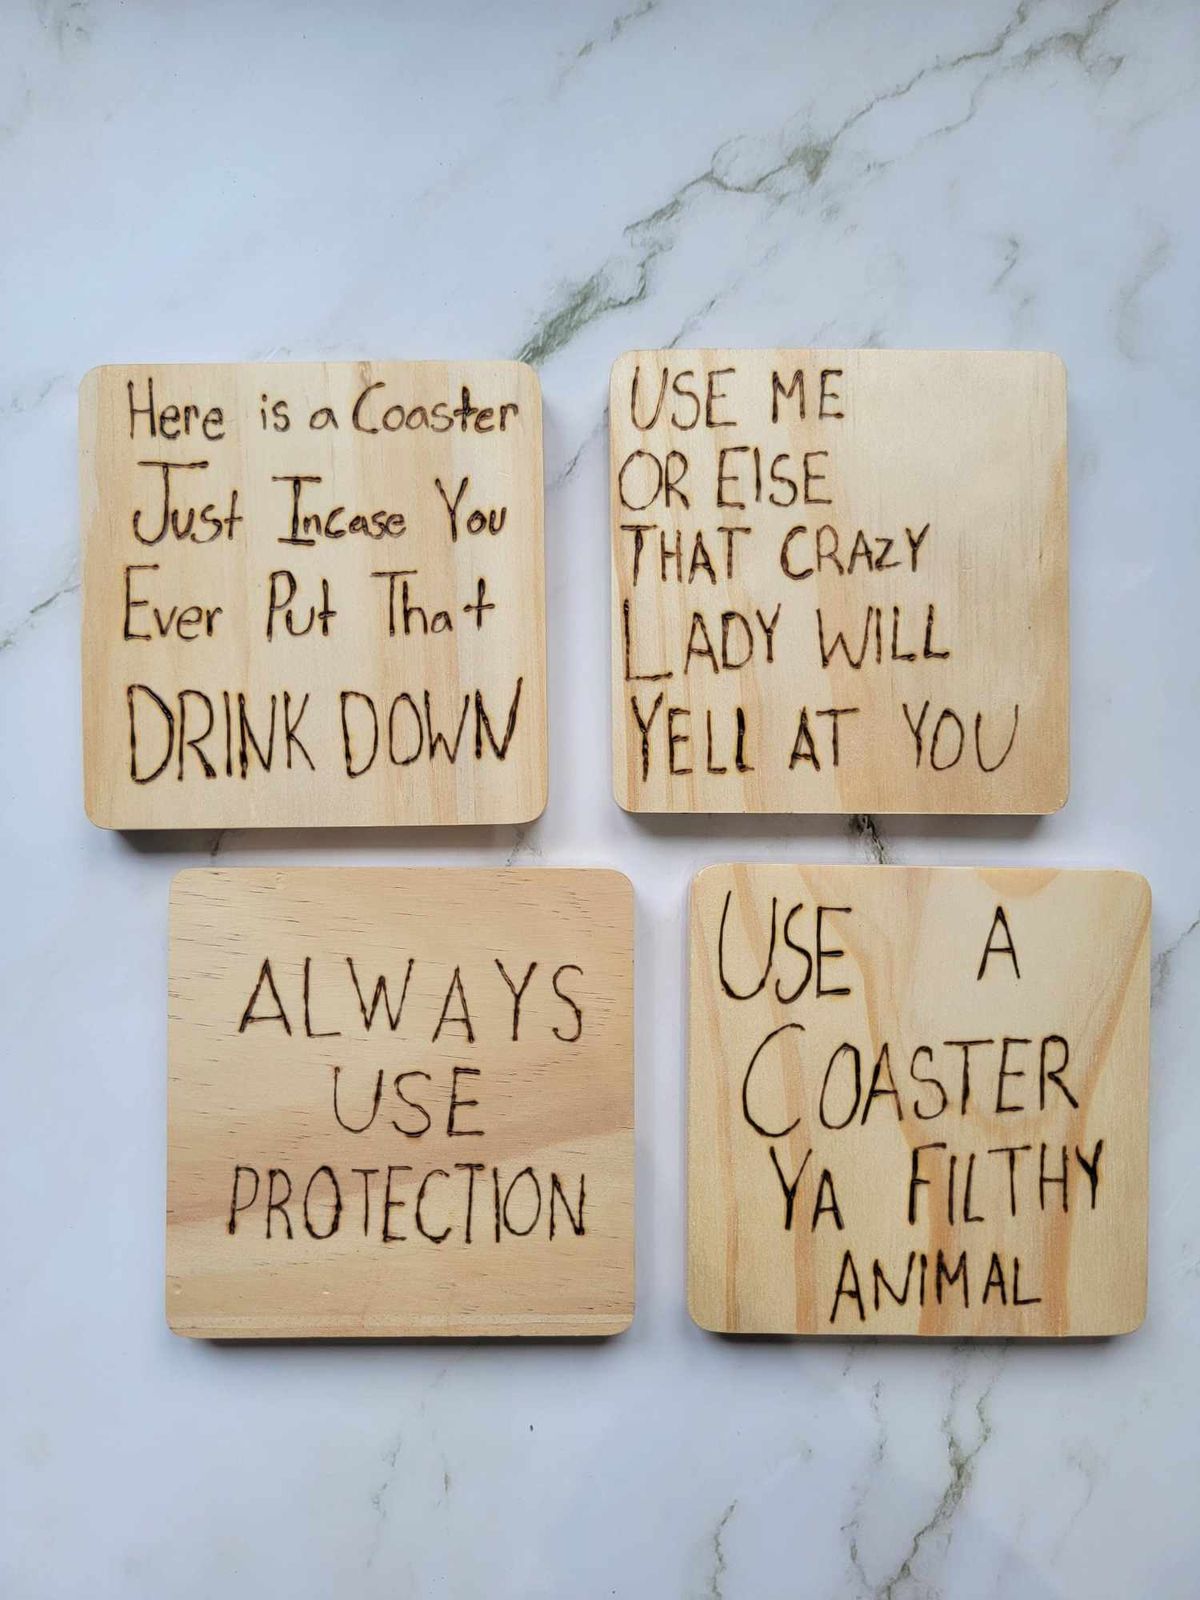 Here is a Coaster
Just Incase You
Ever Put That
DRINK DOWN
USE ME
OR ElSE
THAT CRAZY
LADY WILL
YELL AT YOU
ALWAYS
USE
PROTECTION
USE A
COASTER
YA FILTHY
ANIMAL